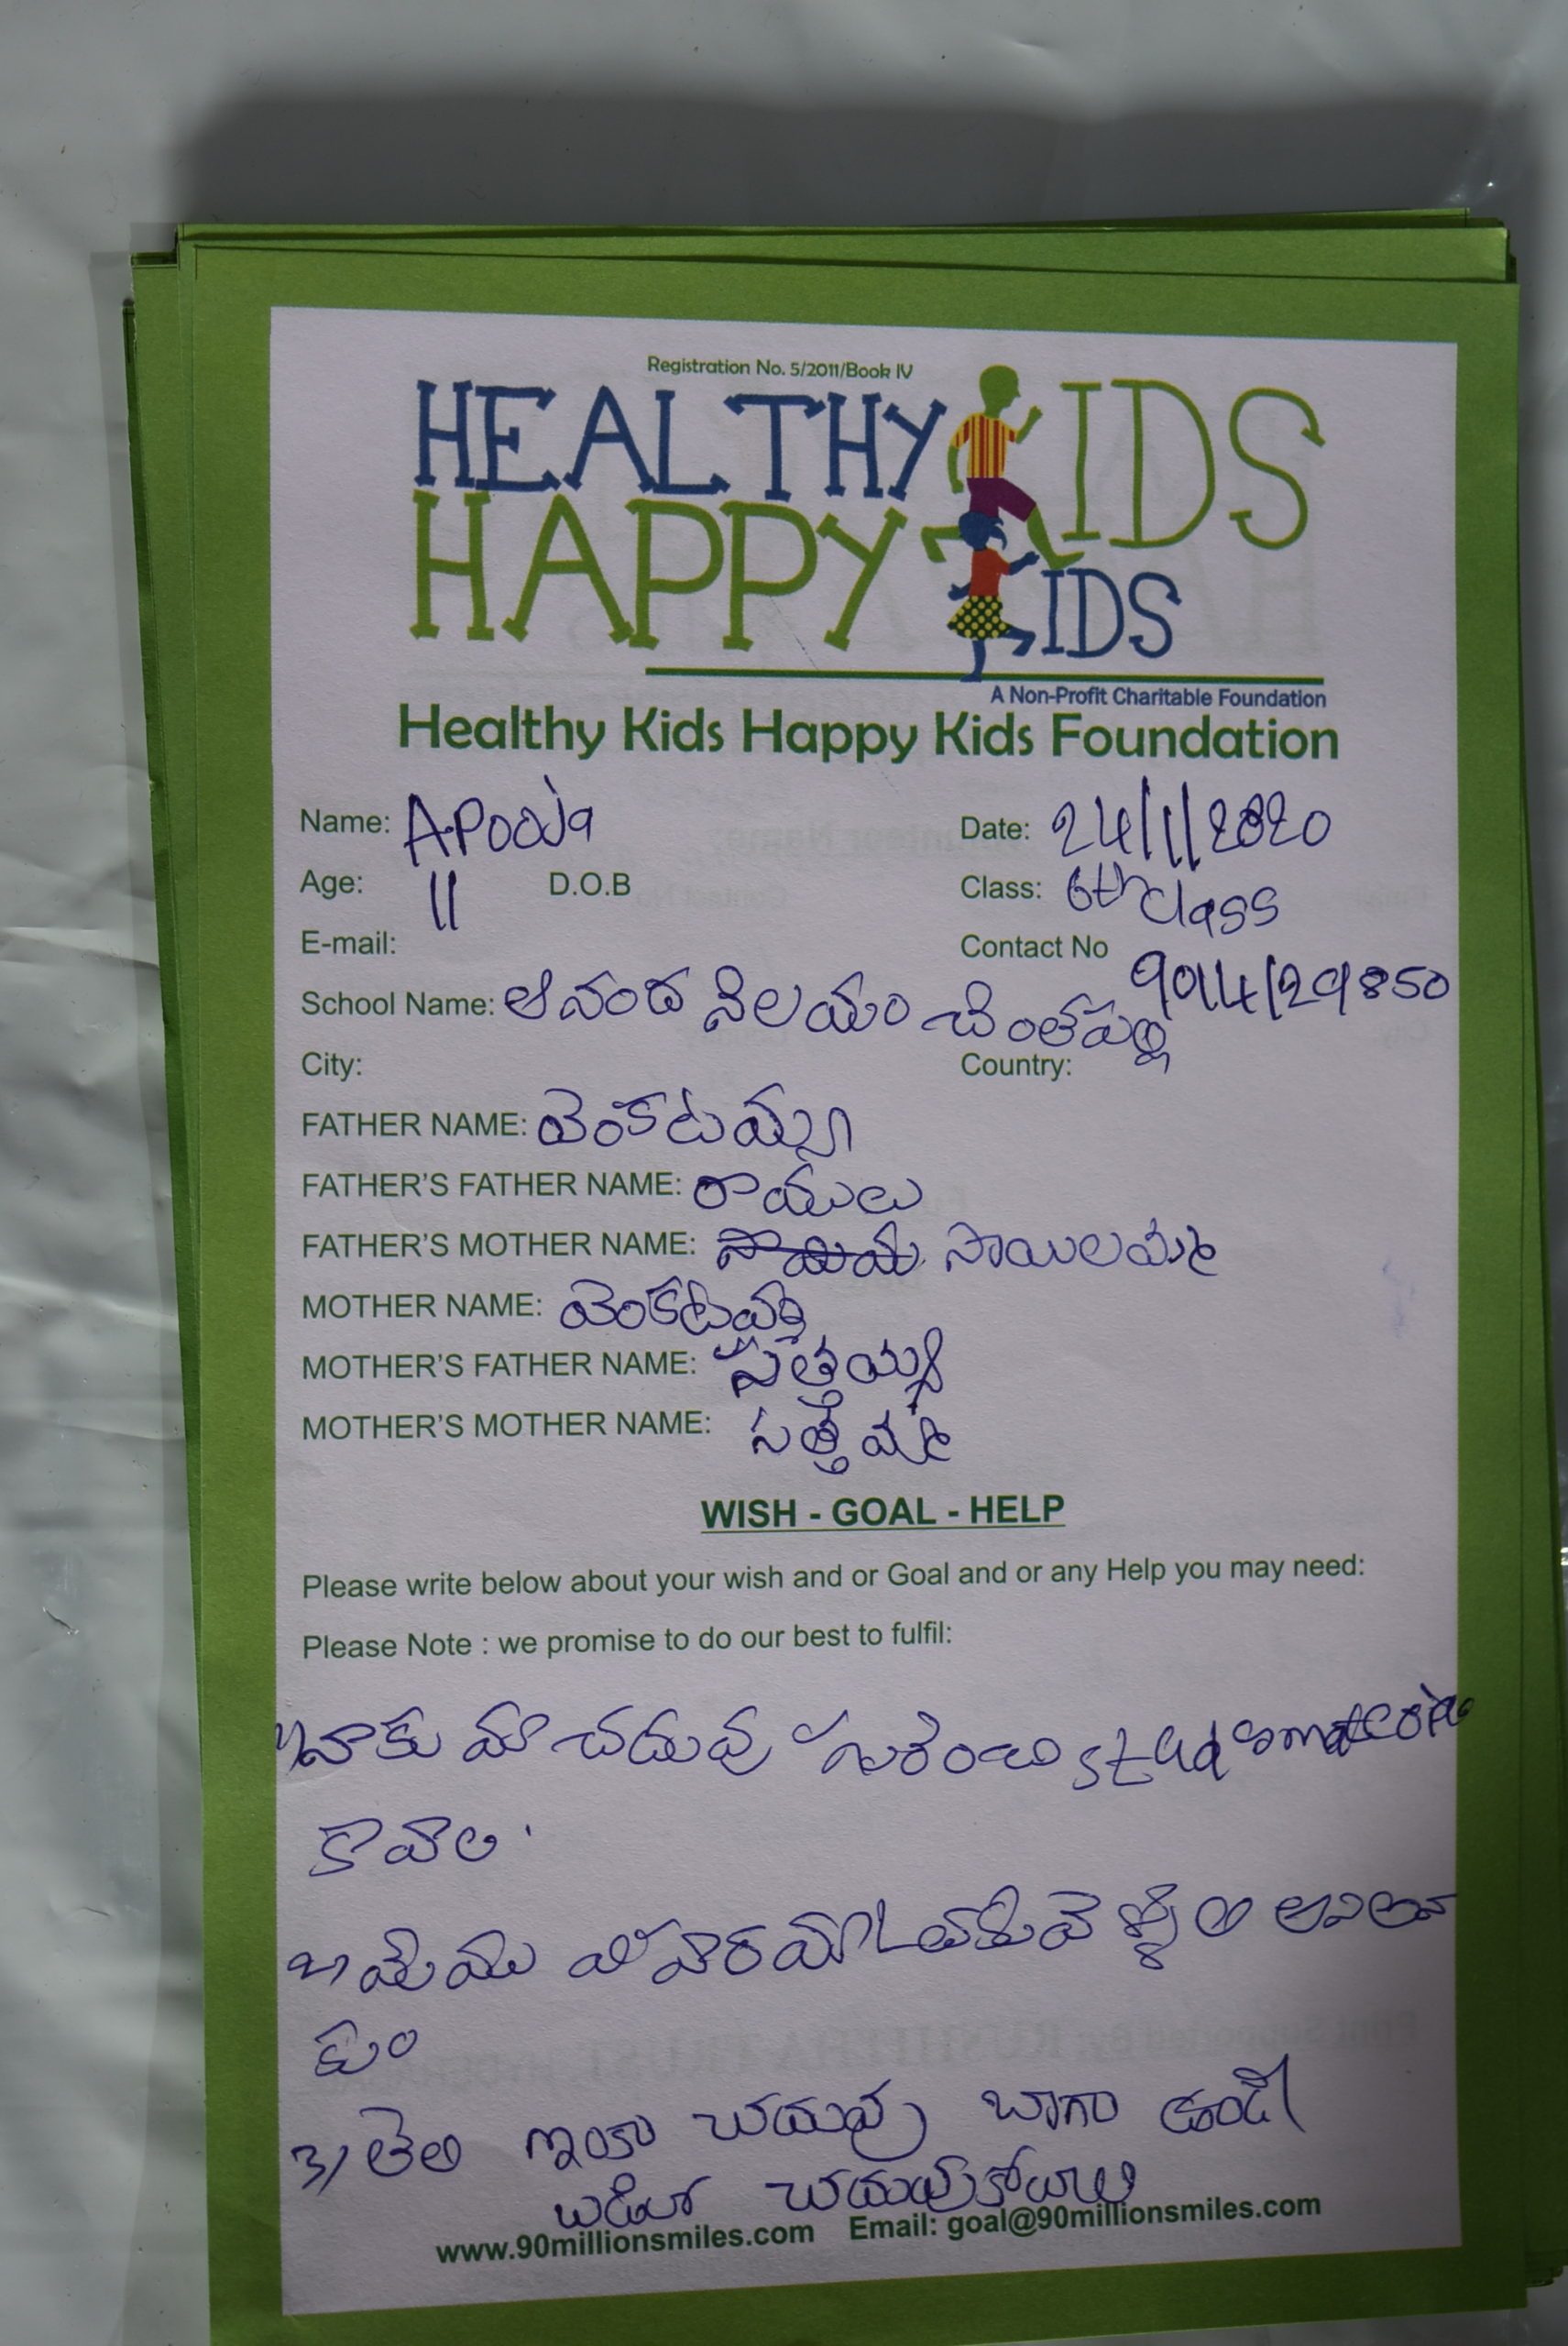 Registration No. 5/2011/Book IV
HEALTHY KIDS
HAPPY KIDS
A Non-Profit Charitable Foundation
Healthy Kids Happy Kids Foundation
Name: A.Pooja Date: 24/1/2020
Age: 11 D.O.B Class: 6th class
E-mail: Contact No
School Name: ఆనంద నిలయం చింతపల్లి
City: Country:
FATHER NAME: వెంకటయ్య
FATHER'S FATHER NAME: రాములు
FATHER'S MOTHER NAME: సాయిలమ్మ
MOTHER NAME:
MOTHER'S FATHER NAME: సత్తయ్య
MOTHER'S MOTHER NAME: సత్తెమ్మ
WISH - GOAL - HELP
Please write below about your wish and or Goal and or any Help you may need:
Please Note : we promise to do our best to fulfil:
1) నాకు మా చదువు గురించి
కావాలి.
2) మేము
3) ఇంకా చదువు బాగా ఉండే
బడిలో చదువుకోవాలి
www.90millionsmiles.com Email: goal@90millionsmiles.com